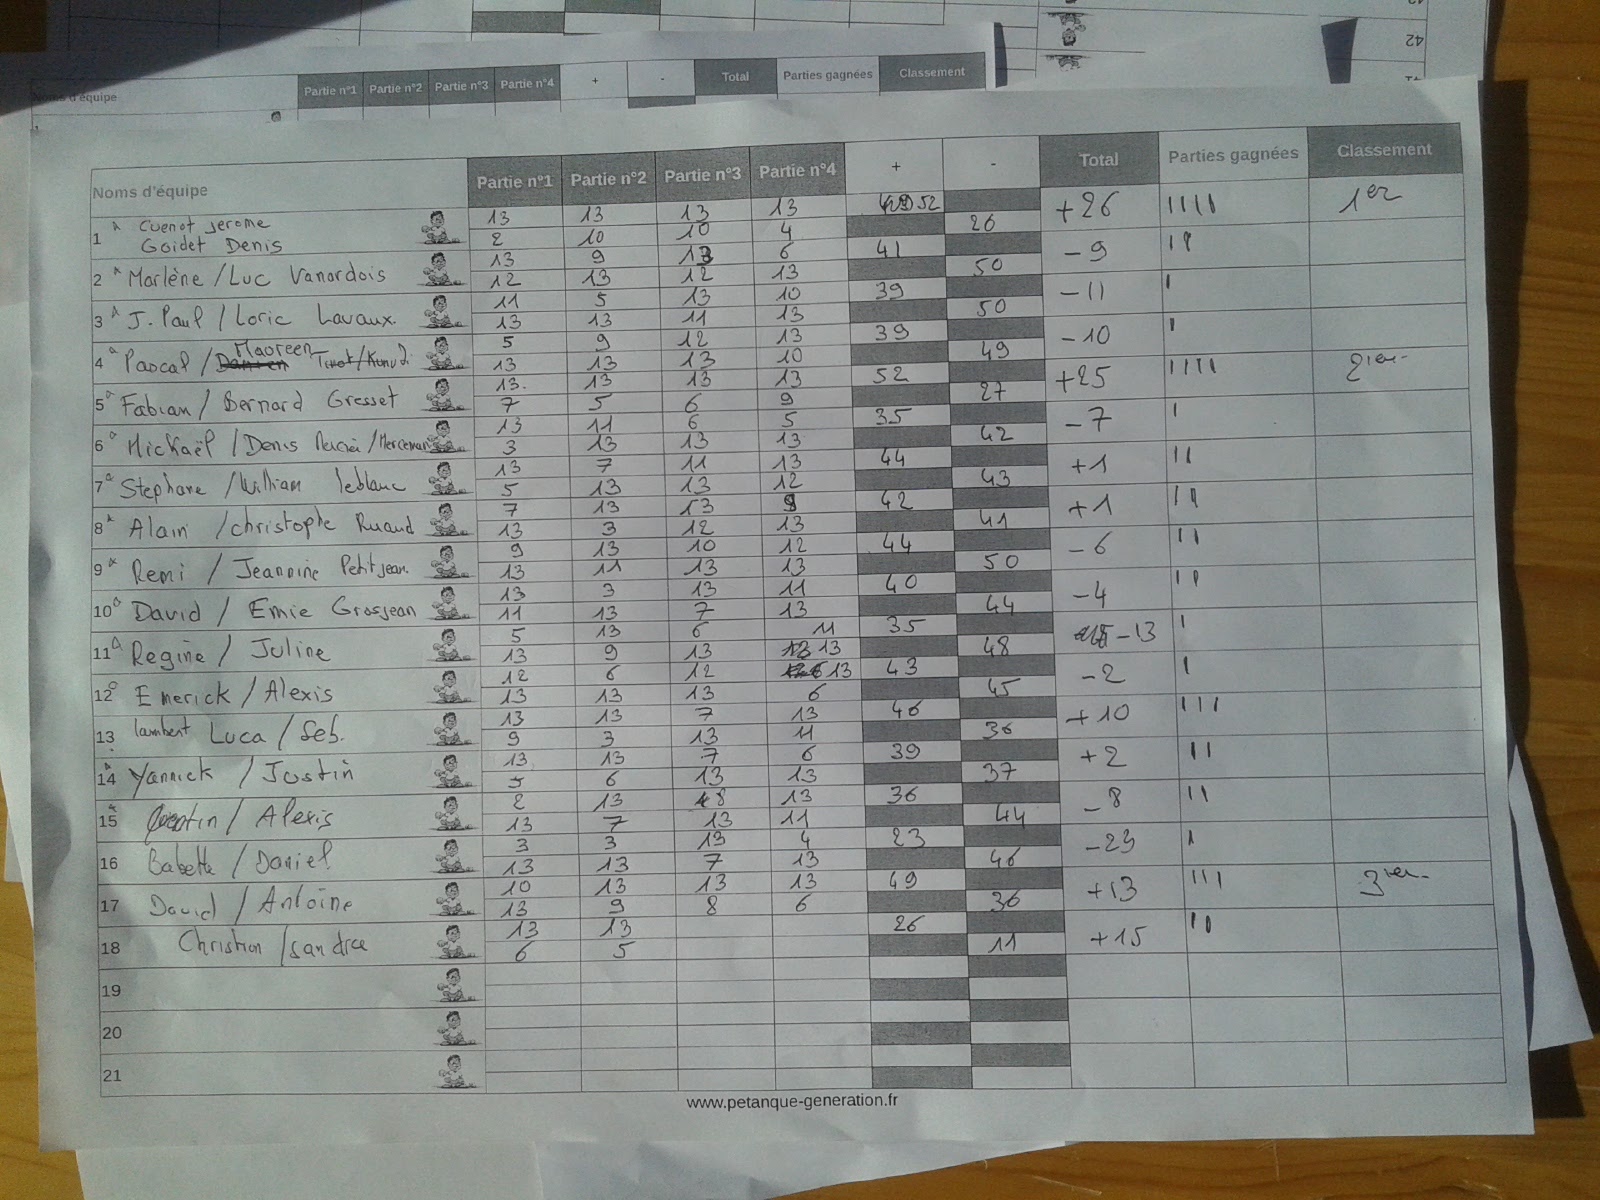 42
Noms d'équipe Partie n°1 Partie n°2 Partie n°3 Partie n°4 + - Total Parties gagnées Classement
Noms d'équipe Partie n°1 Partie n°2 Partie n°3 Partie n°4 + - Total Parties gagnées Classement
1 Cuenot Jerome 13 13 13 13 52 +26 IIII 1er
Goidet Denis 2 10 10 4 26
2 Marlène / Luc Vanardois 13 9 13 6 41 -9 II
12 13 12 13 50
3 J. Paul / Loric Lavaux. 11 5 13 10 39 -11 I
13 13 11 13 50
4 Pascal / Maureen 5 9 12 13 39 -10 I
13 13 13 10 49
5 Fabian / Bernard Gresset 13. 13 13 13 52 +25 IIII 2ier
7 5 6 9 27
6 Mickaël / Denis 13 11 6 5 35 -7 I
3 13 13 13 42
7 Stephane / William leblanc 13 7 11 13 44 +1 II
5 13 13 12 43
8 Alain / christophe Ruaud 7 13 13 9 42 +1 II
13 3 12 13 41
9 Remi / Jeannine Petitjean. 9 13 10 12 44 -6 II
13 11 13 13 50
10 David / Emie Grosjean 13 3 13 11 40 -4 II
11 13 7 13 44
11 Regine / Juline 5 13 6 11 35 -13 I
13 9 13 13 48
12 Emerick / Alexis 12 6 12 13 43 -2 I
13 13 13 6 45
13 lambert Luca / Seb. 13 13 7 13 46 +10 III
9 3 13 11 36
14 Yannick / Justin 13 13 7 6 39 +2 II
5 6 13 13 37
15 Quentin / Alexis 2 13 8 13 36 -8 II
13 7 13 11 44
16 Babette / Daniel 3 3 13 4 23 -23 I
13 13 7 13 46
17 David / Antoine 10 13 13 13 49 +13 III 3ier
13 9 8 6 36
18 Christian / Sandra 13 13 26 +15 II
6 5 11
19
20
21
www.petanque-generation.fr